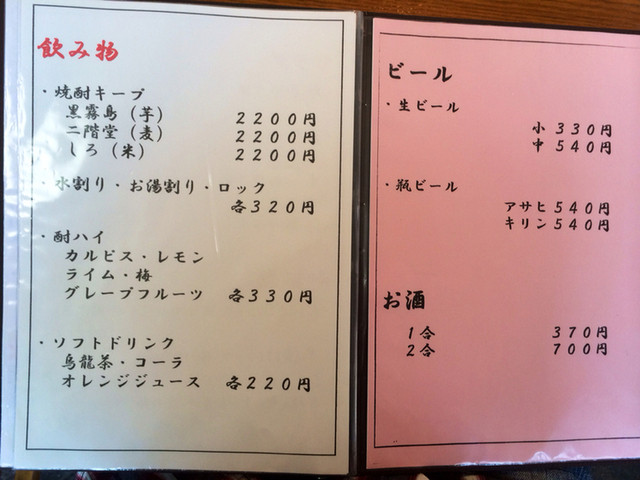 飲み物
・焼酎キープ
黒霧島（芋） 2200円
二階堂（麦） 2200円
しろ（米） 2200円
・水割り・お湯割り・ロック
各320円
・酎ハイ
カルピス・レモン
ライム・梅
グレープフルーツ 各330円
・ソフトドリンク
烏龍茶・コーラ
オレンジジュース 各220円
ビール
・生ビール
小 330円
中 540円
・瓶ビール
アサヒ 540円
キリン 540円
お酒
1合 370円
2合 700円